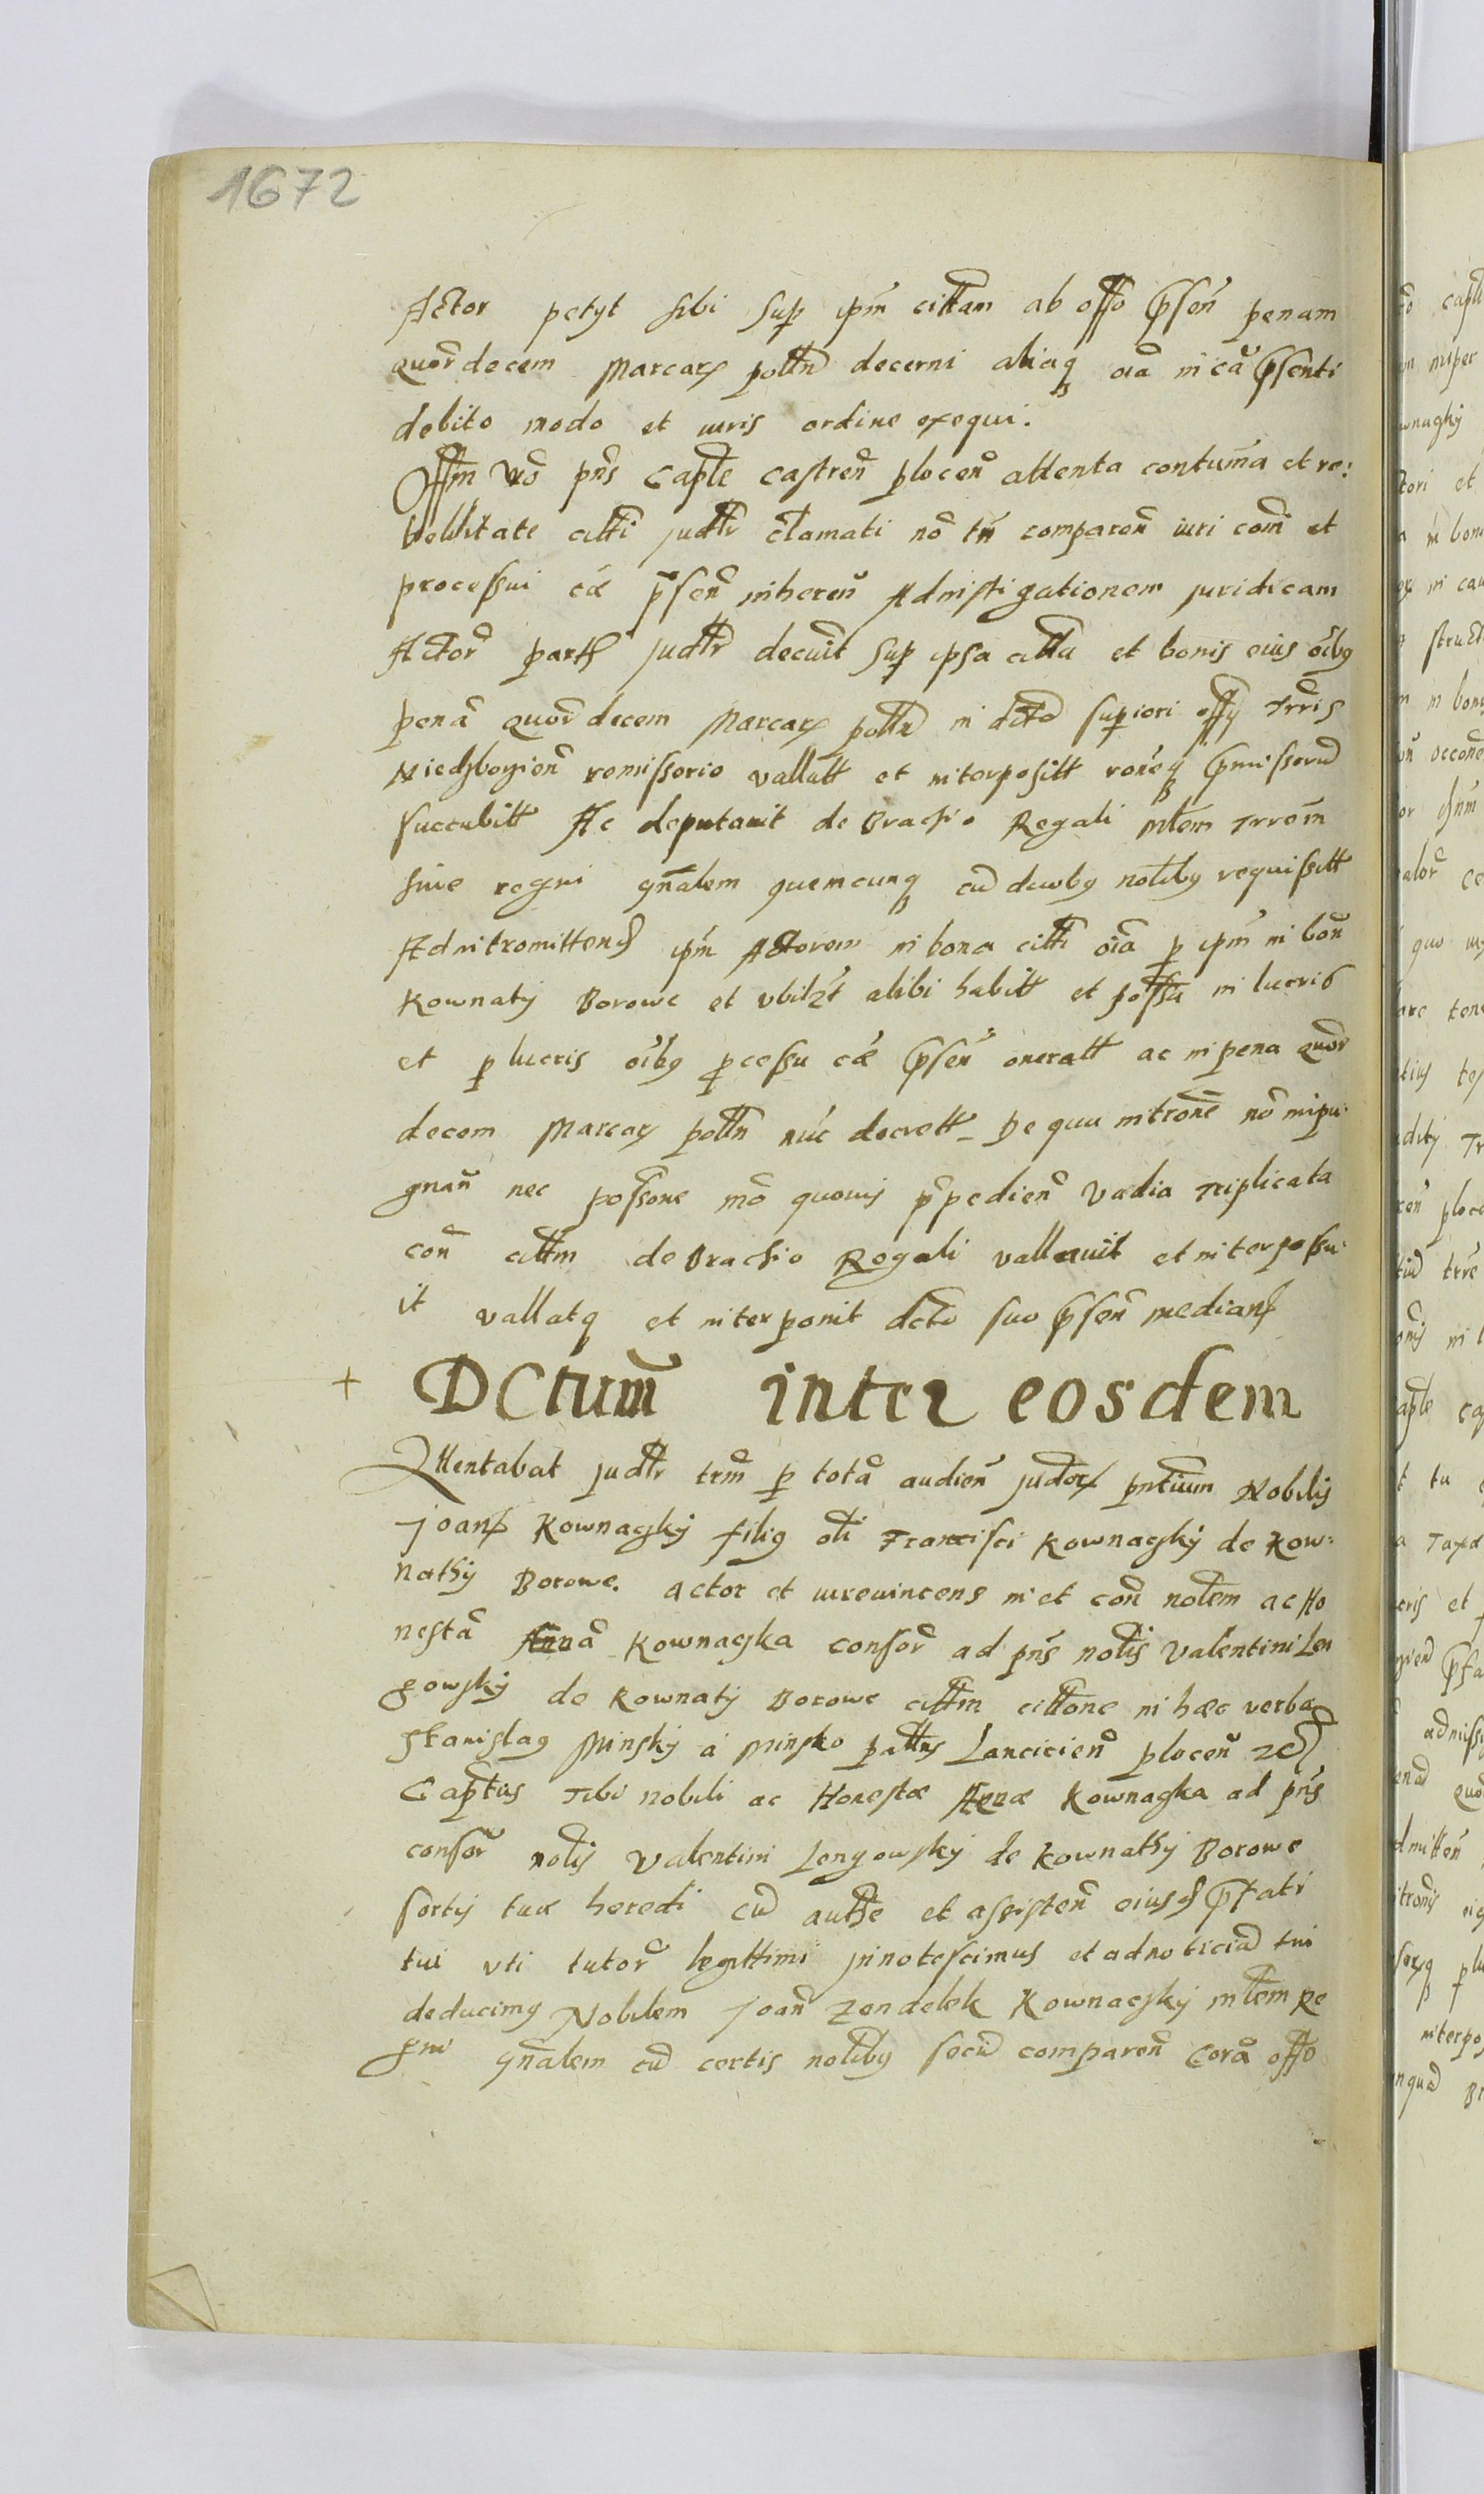 1672
Actor petyt sibi sup ipm cittam ab offo psen penam
quordecem Marcar polln decerni aliaq oia in ca psenti
debito modo et iuris ordine exequi.
Offm vo pns Captle Castren plocen attenta contuma et re:
bellitate citti judltr clamati no tn comparen iuri comi et
processui cae psen inheren Adinstigationem juridicam
Actor parts judltr decuit sup ipsa citta et bonis eius oibg
pena quordecem Marcar polln in dcto supiori offy Trris
Niedzbogien remissorio vallatt et interpositt roneq pmissoru
succubitt Ac deputauit de Brachio Regali mtem Trrem
siue regni gnalem quemcunq cu duobg notibg requisitt
Adintromittend ipm Actorem in bona citti oia p ipm in bon
Kownaty Borowe et vbilzt alibi habitt et possa in lucris
et p lucris oibg pcessu cae psen oneratt ac in pena quor
decem Marcar polln nuc decrett De qua introne no inpu
gnan nec possone mo quouis ppedien vadia Triplicata
con cittm de Brachio Regali vallauit et interposu
it vallatq et interponit dcto suo psen mediant
+ DCtum inter eosdem
Attentabat judltr trm p tota audien judior pntium Nobilis
Joans Kownacsky filig oli Francisci Kownacsky de Kow:
nathy Borowe. actor et iureuincens in et con notem ac Ho
nesta Anna Kownacska consor ad pns notis Valentini Len
gowsky de Kownaty Borowe cittm cittone in haec verba
Stanislag Minsky a Minsko pattns Lancicien plocen zc
Captus Tibi nobili ac Honestae Annae Kownacska ad pns
consor notis Valentini Lengowsky de Kownathy Borowe
sortis tuae heredi cu authe et assisten eiusd pfati
tui vti tutor legittimi innotescimus et ad noticia tui
deducimg Nobilem Joan Zendelek Kownacsky mtem Re
gni gnalem cu certis notibg secu comparen Cora offo